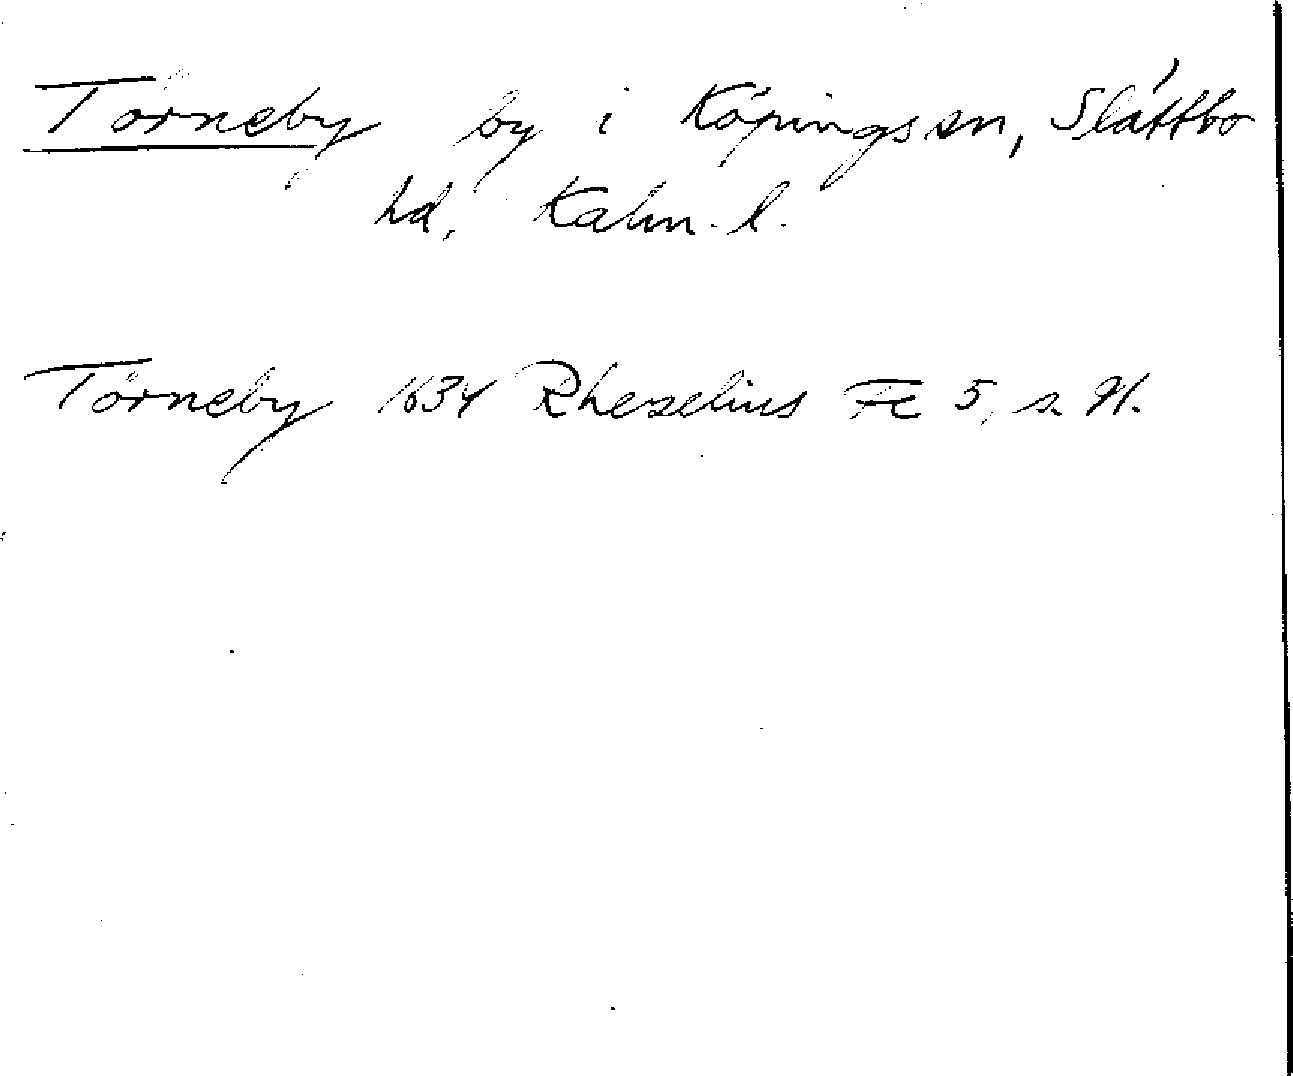 Törneby by i Köpings sn, Slättbo
hd, Kalm. l.
Törneby 1634 Rhezelius Fc 5, s. 91.